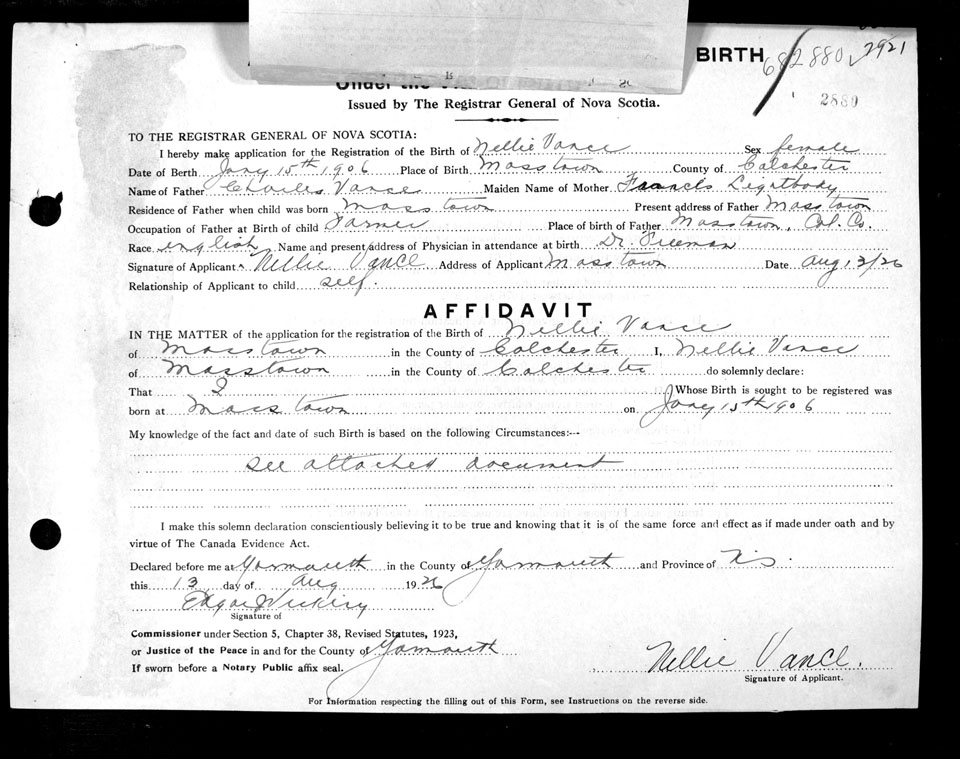 BIRTH 682880 2921
2880
Issued by The Registrar General of Nova Scotia.
TO THE REGISTRAR GENERAL OF NOVA SCOTIA:
I hereby make application for the Registration of the Birth of Nellie Vance Sex female
Date of Berth Jany 15th 1906 Place of Birth Masstown County of Colchester
Name of Father Charles Vance Maiden Name of Mother Francis Lightbody
Residence of Father when child was born Masstown Present address of Father Masstown
Occupation of Father at Birth of child Farmer Place of birth of Father Masstown, Col. Co.
Race english Name and present address of Physician in attendance at birth Dr. Freeman
Signature of Applicant Nellie Vance Address of Applicant Masstown Date Aug 13/26
Relationship of Applicant to child self.
AFFIDAVIT
IN THE MATTER of the application for the registration of the Birth of Nellie Vance
of Masstown in the County of Colchester I, Nellie Vance
of Masstown in the County of Colchester do solemnly declare:
That I Whose Birth is sought to be registered was
born at Masstown on Jany 15th 1906
My knowledge of the fact and date of such Birth is based on the following Circumstances:--
see attached document
I make this solemn declaration conscientiously believing it to be true and knowing that it is of the same force and effect as if made under oath and by
virtue of The Canada Evidence Act.
Declared before me at Yarmouth in the County of Yarmouth and Province of N.S.
this 13 day of Aug 1926
Edgar
Signature of
Commissioner under Section 5, Chapter 38, Revised Statutes, 1923,
or Justice of the Peace in and for the County of Yarmouth
If sworn before a Notary Public affix seal.
Nellie Vance.
Signature of Applicant.
For Information respecting the filling out of this Form, see Instructions on the reverse side.